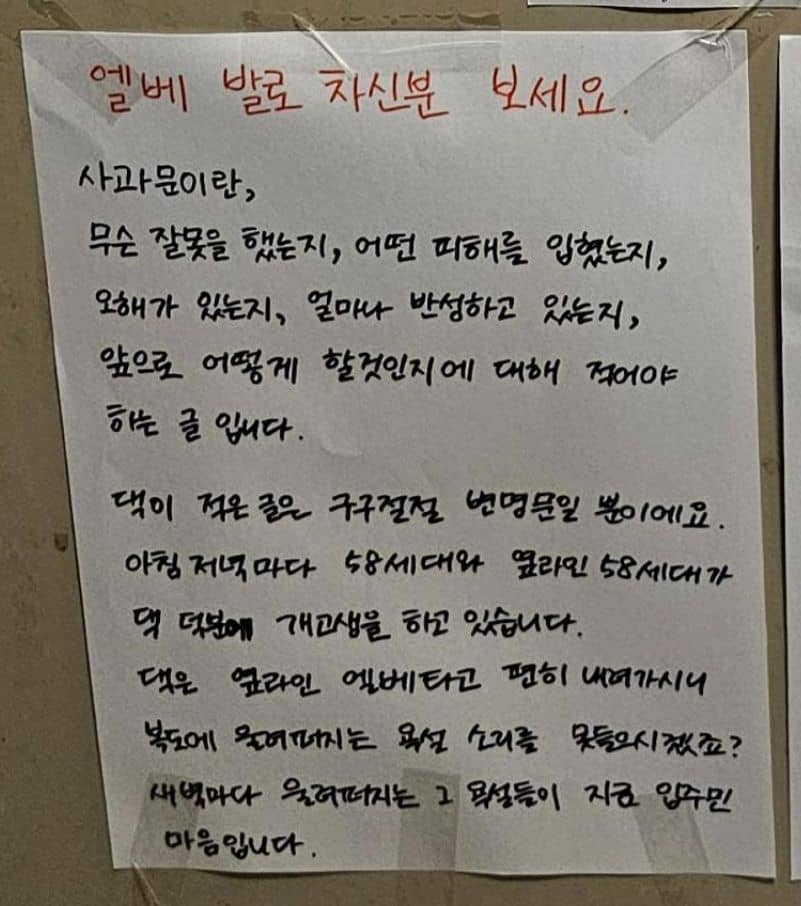 엘베 발로 차신분 보세요.
사과문이란,
무슨 잘못을 했는지, 어떤 피해를 입혔는지,
오해가 있는지, 얼마나 반성하고 있는지,
앞으로 어떻게 할것인지에 대해 적어야
하는 글 입니다.
댁이 적은 글은 구구절절 변명문일 뿐이에요.
아침저녁마다 58세대와 옆라인 58세대가
댁 덕분에 개고생을 하고 있습니다.
댁은 옆라인 엘베타고 편히 내려가시니
복도에 울려퍼지는 욕설 소리를 못들으시겠죠?
새벽마다 울려퍼지는 그 욕설들이 지금 입주민
마음입니다.